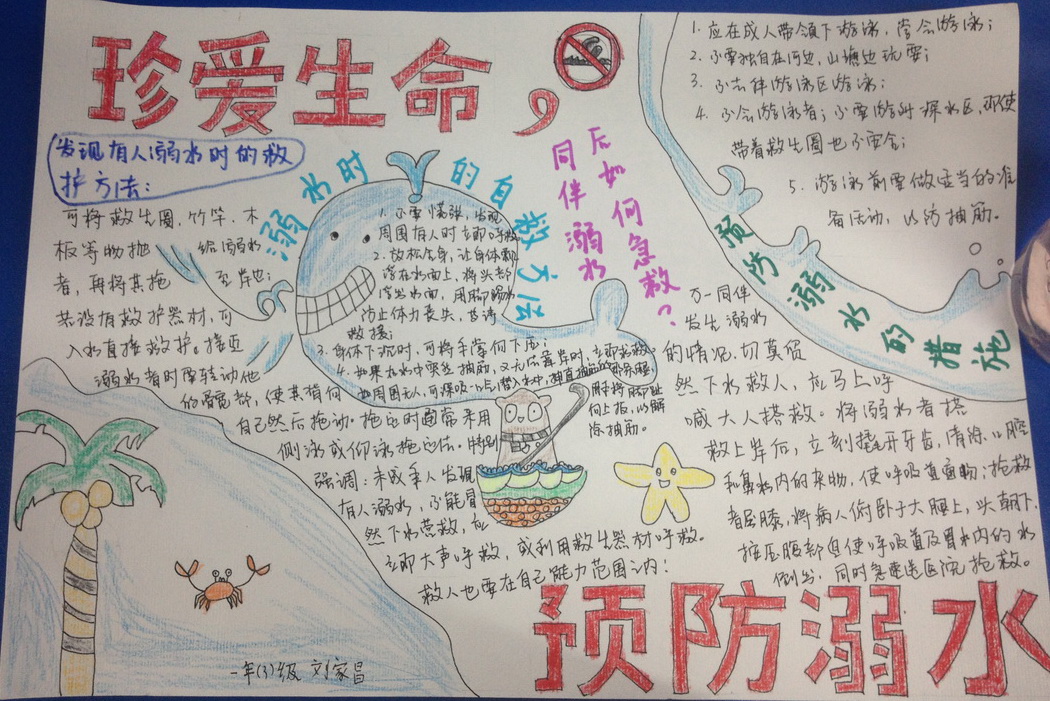 珍爱生命，
预防溺水
发现有人溺水时的救
护方法：
可将救生圈、竹竿、木
板等物抛给溺水
者，再将其拖至岸也；
若没有救护器材，可
入水直接救护。接近
溺水者时要转动他
的髋部，使其背向
自己然后拖动。拖运时通常采用
侧泳或仰泳拖运法。特别
强调：未成年人发现
有人溺水，不能冒
然下水营救，应
立即大声呼救，或利用救生器材呼救。
救人也要在自己能力范围之内！
溺水时的自救方法
1. 不要慌张，发现
周围有人时立即呼救
2. 放松全身，让身体漂
浮在水面上，将头部
浮出水面，用脚踢水
防止体力丧失，等待
救援；
3. 身体下沉时，可将手掌向下压；
4. 如果在水中突然抽筋，又无法靠岸时，立即求救。
如周围无人，可深吸一口气潜入水中，伸直抽筋的
用手将脚趾
向上扳，以解
除抽筋。
同伴溺水
后如何急救？
万一同伴
发生溺水
的情况，切莫贸
然下水救人，应马上呼
喊大人搭救。将溺水者搭
救上岸后，立刻撬开牙齿，清除口腔
和鼻水内的杂物，使呼吸道畅；抢救
者屈膝，将病人俯卧于大腿上，头朝下，
按压腹部迫使呼吸道及胃水内的水
倒出，同时急速送医院抢救。
预防溺水的措施
1. 应在成人带领下游泳，学会游泳；
2. 不要独自在河边，山塘边玩耍；
3. 不去非游泳区游泳；
4. 不会游泳者；不要游到深水区，即使
带着救生圈也不安全；
5. 游泳前要做适当的准
备活动，以防抽筋。
一年(3)级 刘家昌